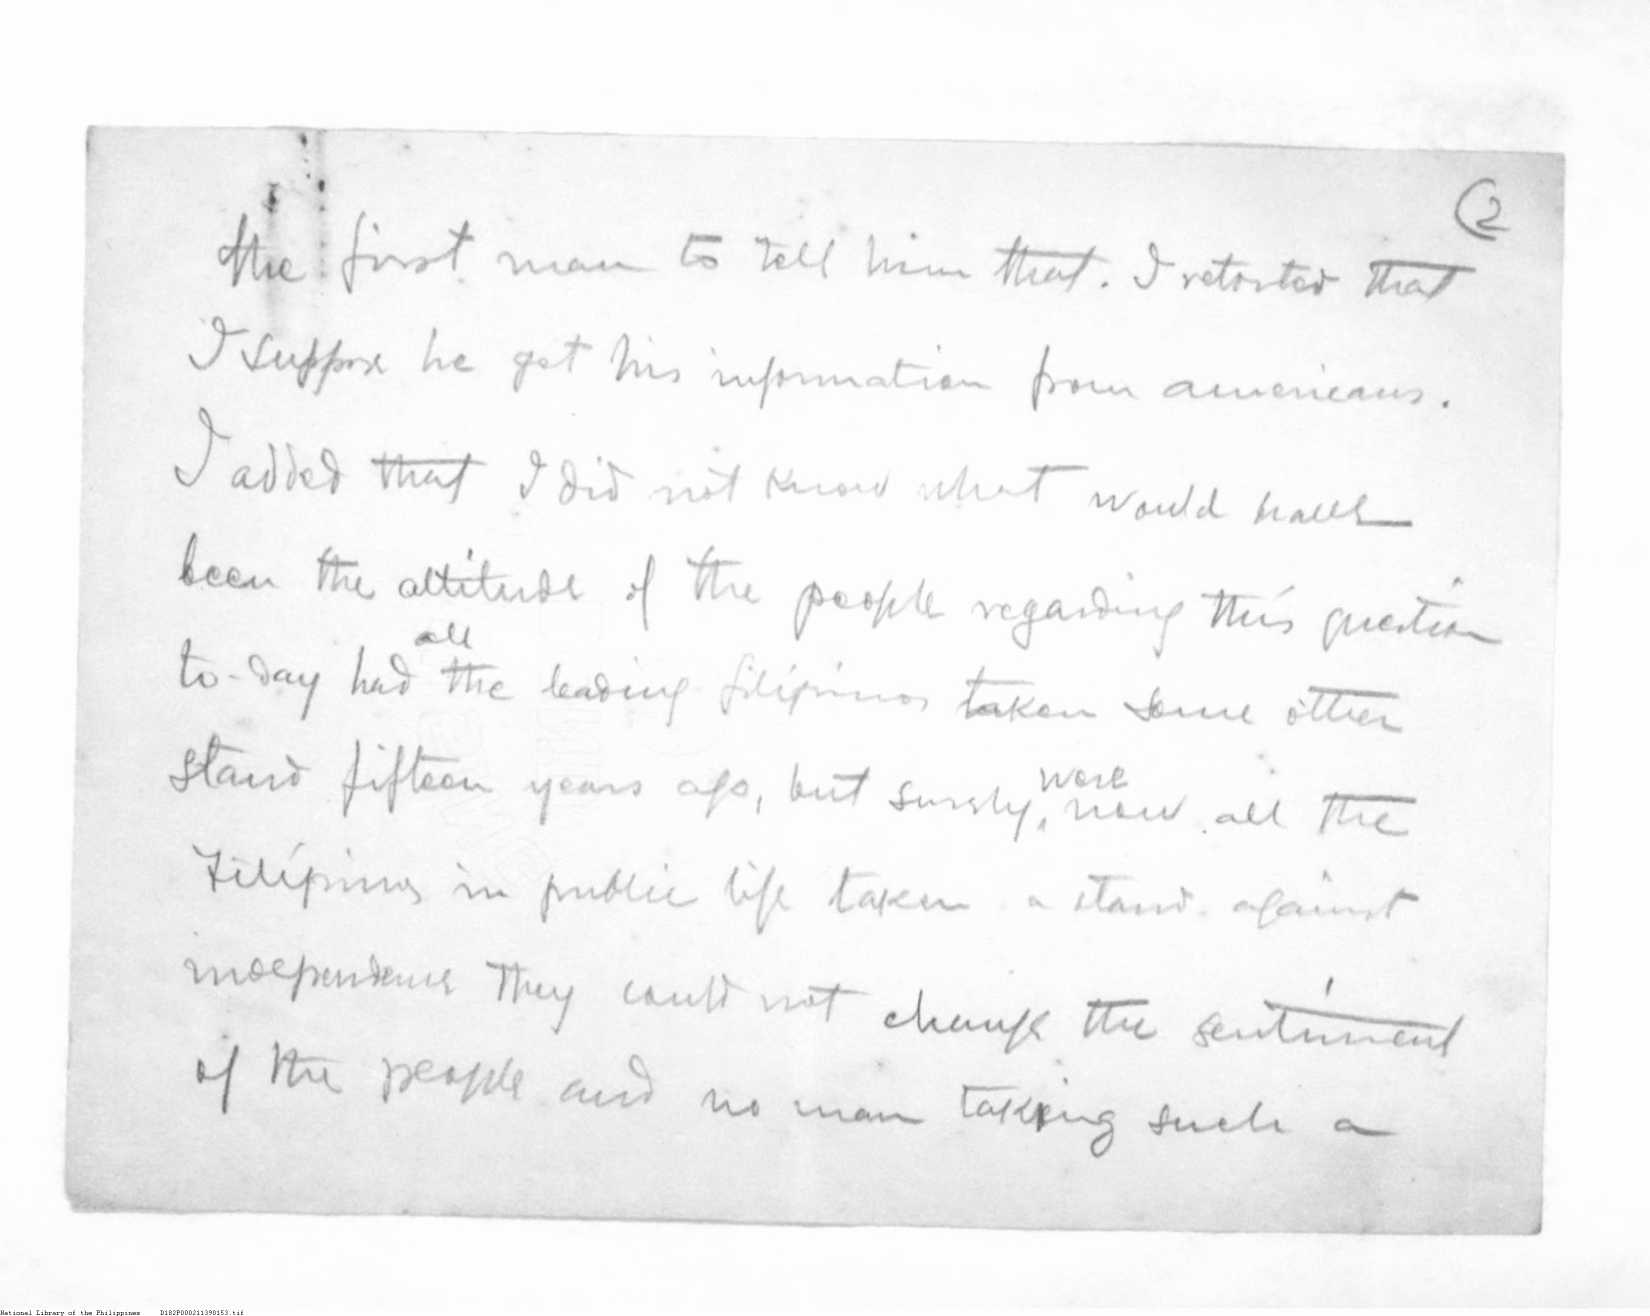 (2
the first man to tell him that. I retorted that
I suppose he got his information from americans.
I added that I did not know what would have
been the attitude of the people regarding this question
all
to-day had the leading filipinos taken some other
were
stand fifteen years ago, but surely, now all the
Filipinos in public life taken a stand against
independence they could not change the sentiment
of the people and no man taking such a
National Library of the Philippines D182P000211390153.tif